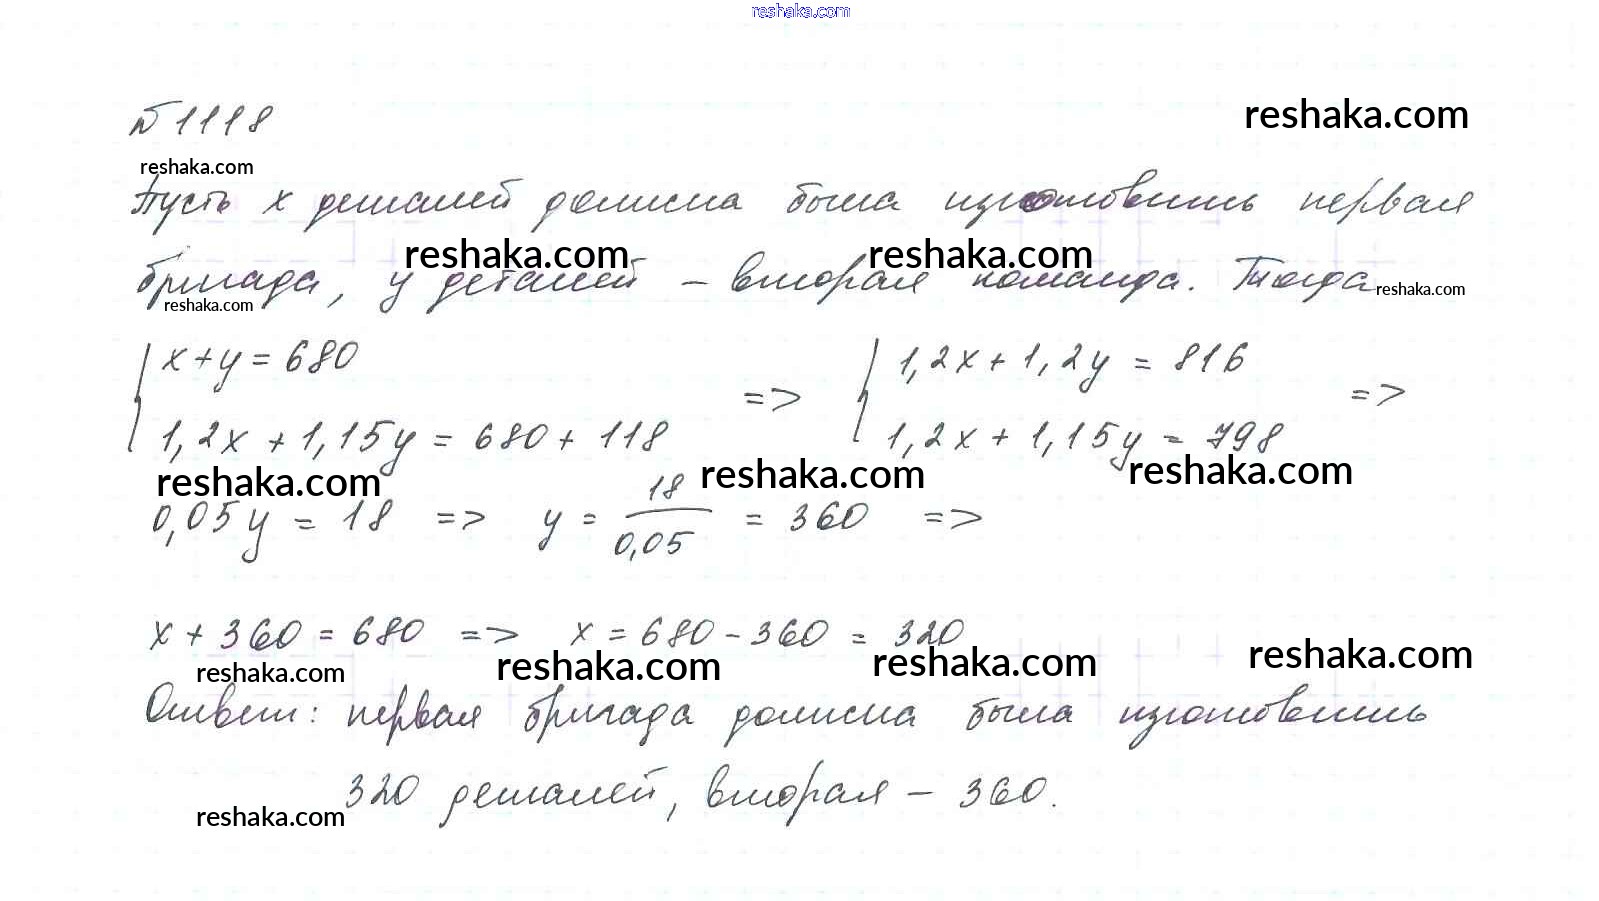 reshaka.com
№1118
reshaka.com
reshaka.com
Пусть x деталей должна была изготовить первая
reshaka.com reshaka.com
бригада, y деталей – вторая команда. Тогда
reshaka.com reshaka.com
x+y=680 1,2x+1,2y=816
=> =>
1,2x+1,15y=680+118 1,2x+1,15y=798
reshaka.com reshaka.com reshaka.com
0,05y=18 => y= 18/0,05 = 360 =>
x+360=680 => x=680-360=320
reshaka.com reshaka.com reshaka.com reshaka.com
Ответ: первая бригада должна была изготовить
320 деталей, вторая – 360.
reshaka.com